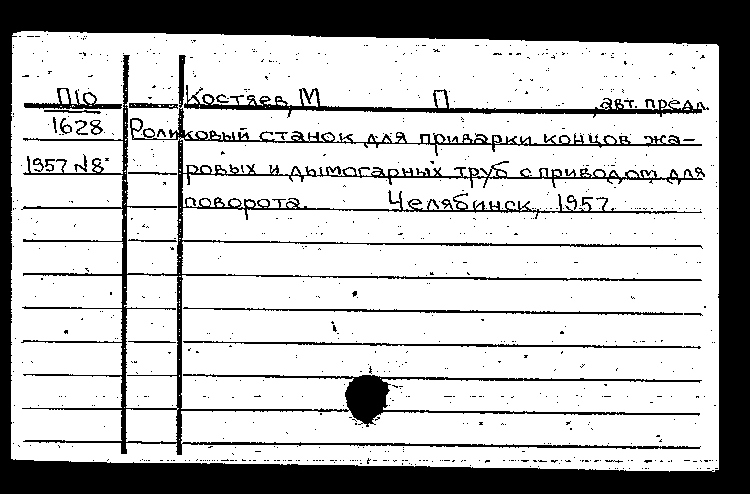 П10 Костяев, М П , авт. предл.
1628 Роликовый станок для приварки концов жа-
1957 №8 ровых и дымогарных труб с приводом для
поворота. Челябинск, 1957.